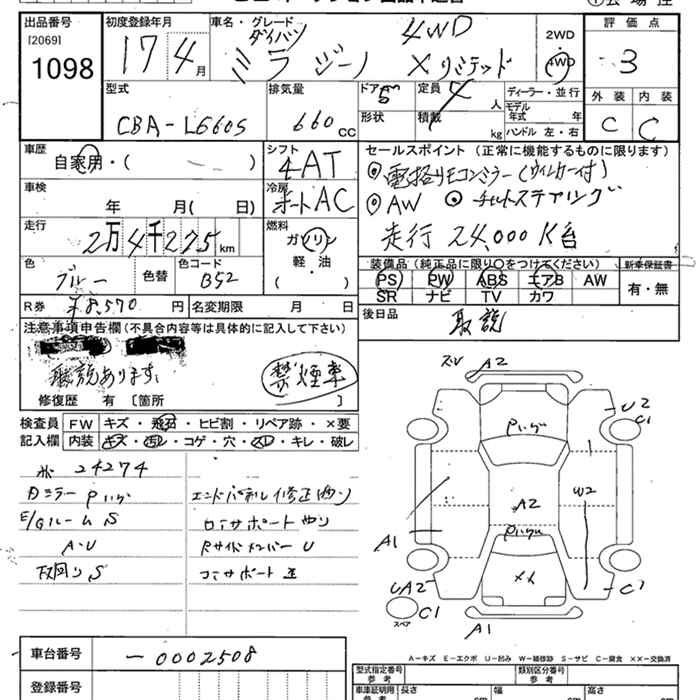 出品番号 初度登録年月 車名・グレード 評価点
[2069]
1098
17年 4月
ダイハツ 4WD
ミラ ジーノ X リミテッド
2WD
4WD
3
型式 排気量 ドア 定員 ディーラー・並行 外装 内装
CBA-L660S 660CC 5 人 モデル年式 年 C C
形状 積載 kg ハンドル 左・右
車歴 シフト セールスポイント (正常に機能するものに限ります)
自家用・( ) 4AT ◎電格リモコンミラー(ウィンカー付)
車検 冷房 ◎AW ◎チルトステアリング
年 月( 日) オートAC
走行 燃料 走行 24,000K台
2万4千275km ガソリン
軽・油
( )
色 色替 色コード 装備品 (純正品に限り○をつけてください) 新車保証書
ブルー B52 PS PW ABS エアB AW 有・無
SR ナビ TV カワ
R券 ¥8,570円 名変期限 月 日 後日品 取説
注意事項申告欄 (不具合内容等は具体的に記入して下さい)
取説あります。 禁煙車
修復歴 有 [箇所 ]
検査員 FW キズ・飛石・ヒビ割・リペア跡・×要
記入欄 内装 キズ・汚レ・コゲ・穴・スレ・キレ・破レ
24274
E/Gルーム S
A・U
下回り S
コアサポート
Rサイドメンバー U
コアサポート
A2
U2
C1
W2
A2
A1
UA2
C1
スペア
C1
A1
A-キズ E-エクボ U-凹み W-補修跡 S-サビ C-腐食 XX-交換済
車台番号 -0002508
登録番号
型式指定番号 参考 類別区分番号 参考
車庫証明用 参考 長さ 幅 高さ